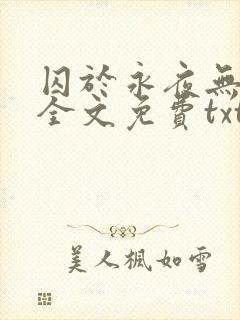 囚於永夜無
全文免費txt
美人楓如雪